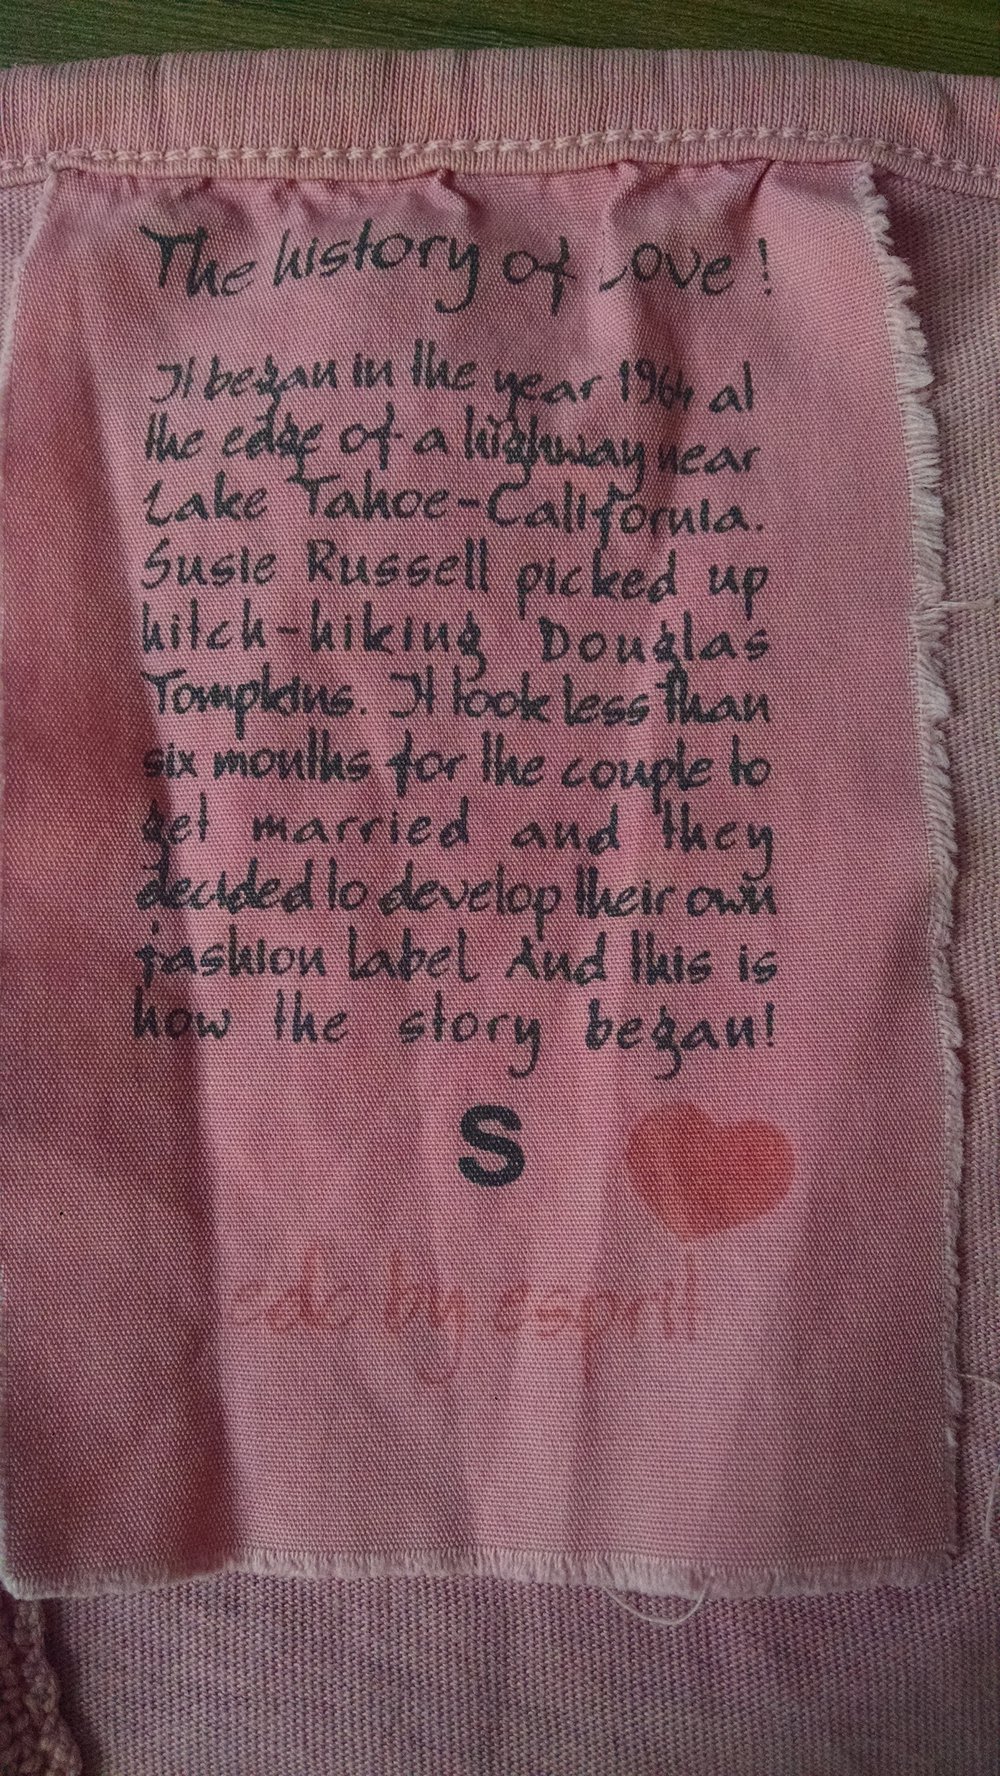 The history of Love!
It began in the year 1964 at
the edge of a highway near
Lake Tahoe-California.
Susie Russell picked up
hitch-hiking Douglas
Tompkins. It took less than
six months for the couple to
get married and they
decided to develop their own
fashion label And this is
how the story began!
S
edc by esprit